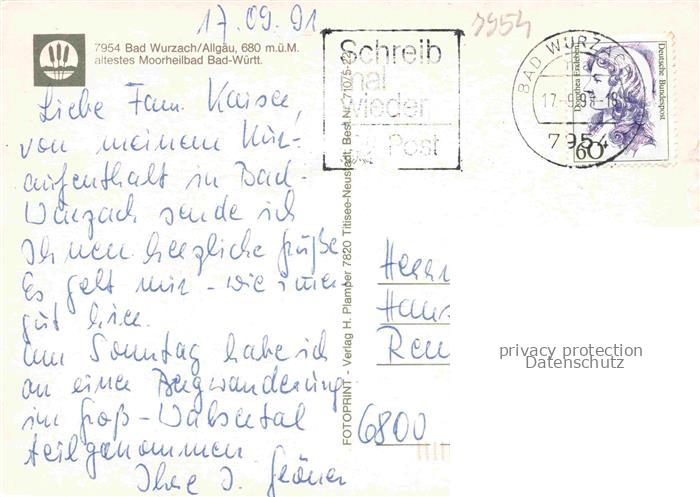 17.09.91
7954
7954 Bad Wurzach/Allgäu, 680 m.ü.M.
ältestes Moorheilbad Bad-Württ.
Schreib
mal
wieder
Post
BAD WURZACH
17.-9.91-18
7954
Deutsche Bundespost
60
Liebe Fam. Kaiser,
von meinem Kur-
aufenthalt in Bad-
Wurzach sende ich
Ihnen herzliche Grüße
Es geht mir - wie immer
gut hier.
Am Sonntag habe ich
an einer Bergwanderung
im Groß-Walsertal
teilgenommen.
Ihre J.
FOTOPRINT - Verlag H. Plamper 7820 Titisee-Neustadt, Best.Nr. 710/5-22
Herrn
Hans
Ren
6800
privacy protection
Datenschutz